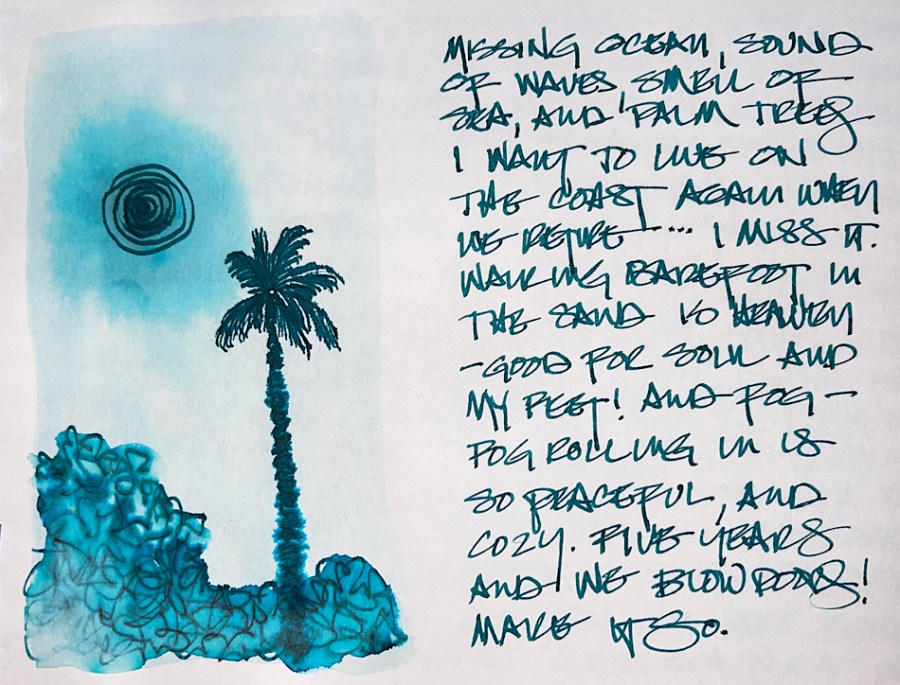 MISSING OCEAN, SOUND
OF WAVES, SMELL OF
SEA, AND PALM TREES
I WANT TO LIVE ON
THE COAST AGAIN WHEN
WE RETIRE --... I MISS IT.
WALKING BAREFOOT IN
THE SAND IS HEAVEN
-GOOD FOR SOUL AND
MY FEET! AND FOG -
FOG ROLLING IN IS
SO PEACEFUL, AND
COZY. FIVE YEARS
AND WE BLOW DODGE!
MAKE IT SO.